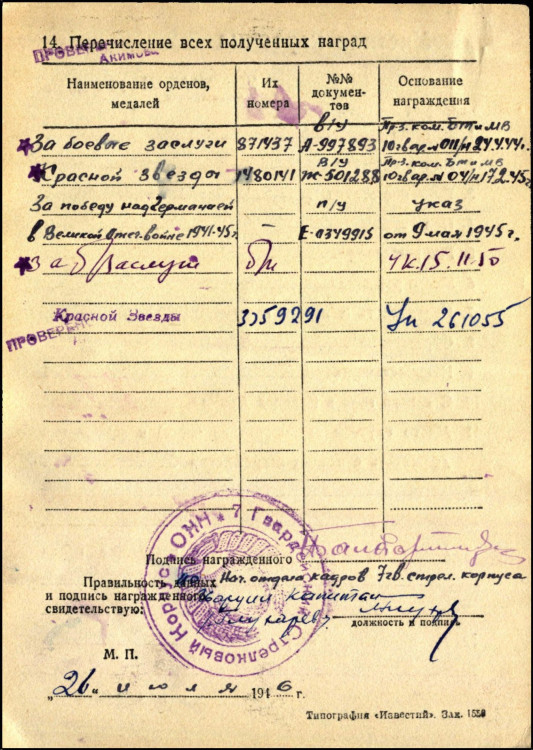 14. Перечисление всех полученных наград
ПРОВЕРЕ
АКИМОВ
Наименование орденов, медалей
Их номера
№№ документов
Основание награждения
За боевые заслуги 871437 В/У А-997893 Пр-з. ком. БТ и МВ 10 гвар. № 011/н 24.4.44г.
Красной звезды 1480141 В/У Ж-501288 Пр-з. ком. БТ и МВ 10 гвар. № 04/н 17.2.45г.
За победу над Германией п/у указ
в Великой Отеч. войне 1941-45г. Е-0349915 от 9 мая 1945г.
За б/заслуги б/н УК. 15.11.50
Красной Звезды 3359291 Уп 261055
ПРОВЕРЕН
Подпись награжденного
Правильность данных
и подпись награжденного
свидетельствую:
Нач. отдела кадров 7 гв. стрел. корпуса
Гвардии капитан
должность и подпись
7 Гвардейский Стрелковый Корпус
М. П.
„26" июля 1946 г.
Типография «Известий». Зак. 1558